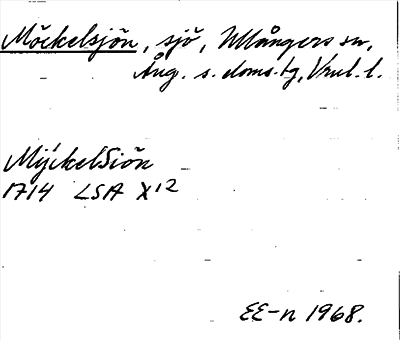 Möckelsjön, sjö, Ullångers sn,
Ång. s. doms.-tg, Vnrl. l.
MÿckelSiön
1714 LSA X12
EE-n 1968.